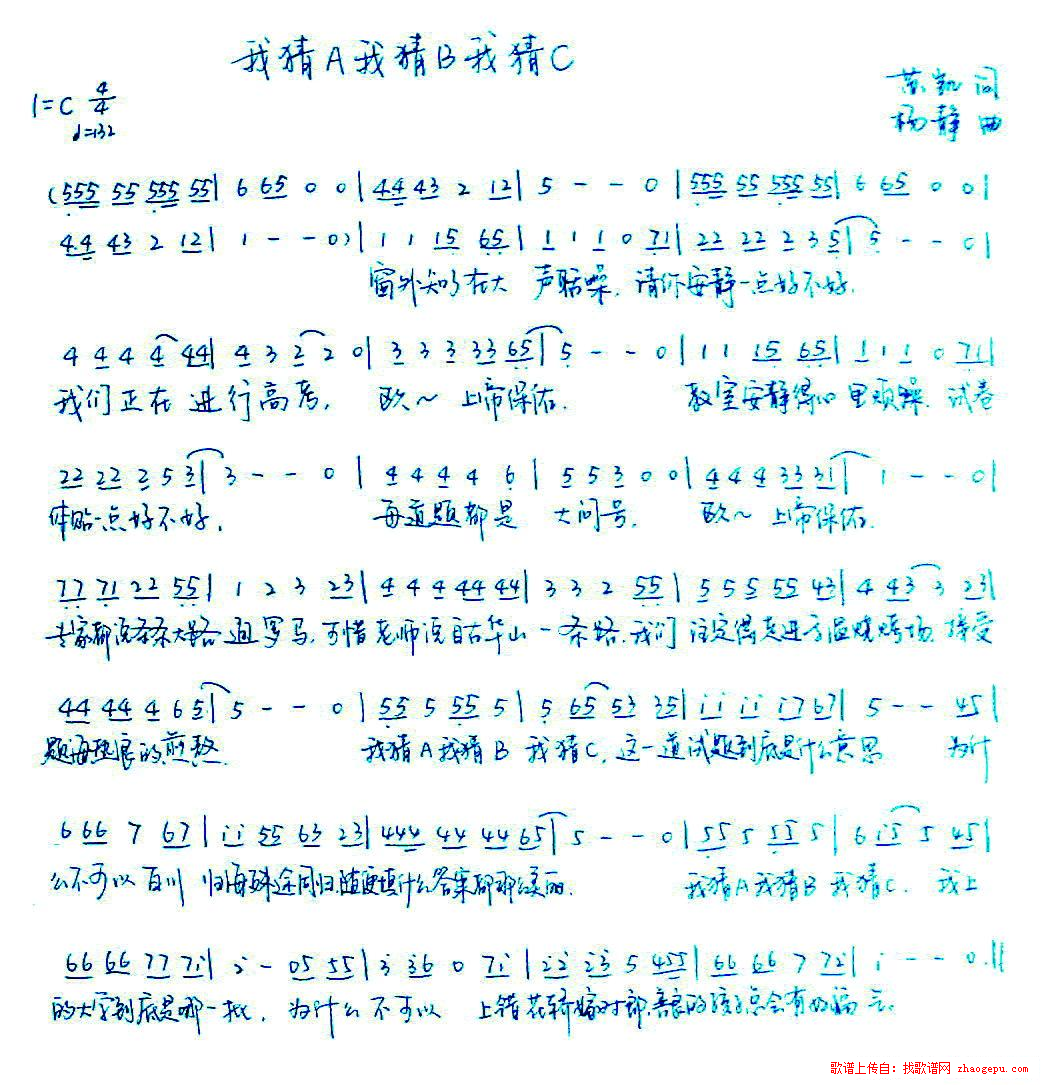 我猜A我猜B我猜C
苏凯 词
1=C 4/4
杨静 曲
♩=132
(555 55 555 55| 6 65 0 0| 44 43 2 12| 5 - - 0 |555 55 555 55| 6 65 0 0|
44 43 2 12| 1 - - 0)| 1 1 15 65| 1 1 1 0 71| 22 22 2 3 5| 5 - - 0|
窗外知了在大 声聒噪, 请你安静一点好不好.
4 4 4 4 44| 4 3 2 2 0| 3 3 3 33 65| 5 - - 0 | 1 1 15 65| 1 1 1 0 71|
我们正在 进行高考, 欧~ 上帝保佑. 教室安静得心里烦躁. 试卷
22 22 2 5 3| 3 - - 0 | 4 4 4 4 6 | 5 5 3 0 0| 4 4 4 33 31| 1 - - 0|
体贴一点好不好, 每道题都是 大问号. 欧~ 上帝保佑.
77 71 22 55| 1 2 3 23| 4 4 4 44 44| 3 3 2 55 | 5 5 5 55 43| 4 43 3 23|
专家都说条条大路 通罗马, 可惜老师说自古华山一条路. 我们 注定得走进高温烧烤场. 接受
44 44 4 6 5| 5 - - 0 | 55 5 55 5| 5 65 53 35| ii ii i7 67| 5 - - 45|
题海热浪的煎熬. 我猜A我猜B 我猜C. 这一道试题到底是什么意思 为什
6 66 7 67 | ii 55 63 23| 444 44 44 65| 5 - - 0 | 55 5 55 5| 6 i5 5 45|
么不可以百川 归海殊途同归.随便填什么答案都那么美丽. 我猜A我猜B 我猜C. 我上
66 66 77 7i| 2 - 05 55| 3 36 0 7i| 22 23 5 455| 66 66 7 72| i - - 0.||
的大学到底是哪一批. 为什么不可以 上错花轿嫁对郎.善良的孩子总会有好福气.
歌谱上传自: 找歌谱网 zhaogepu.com